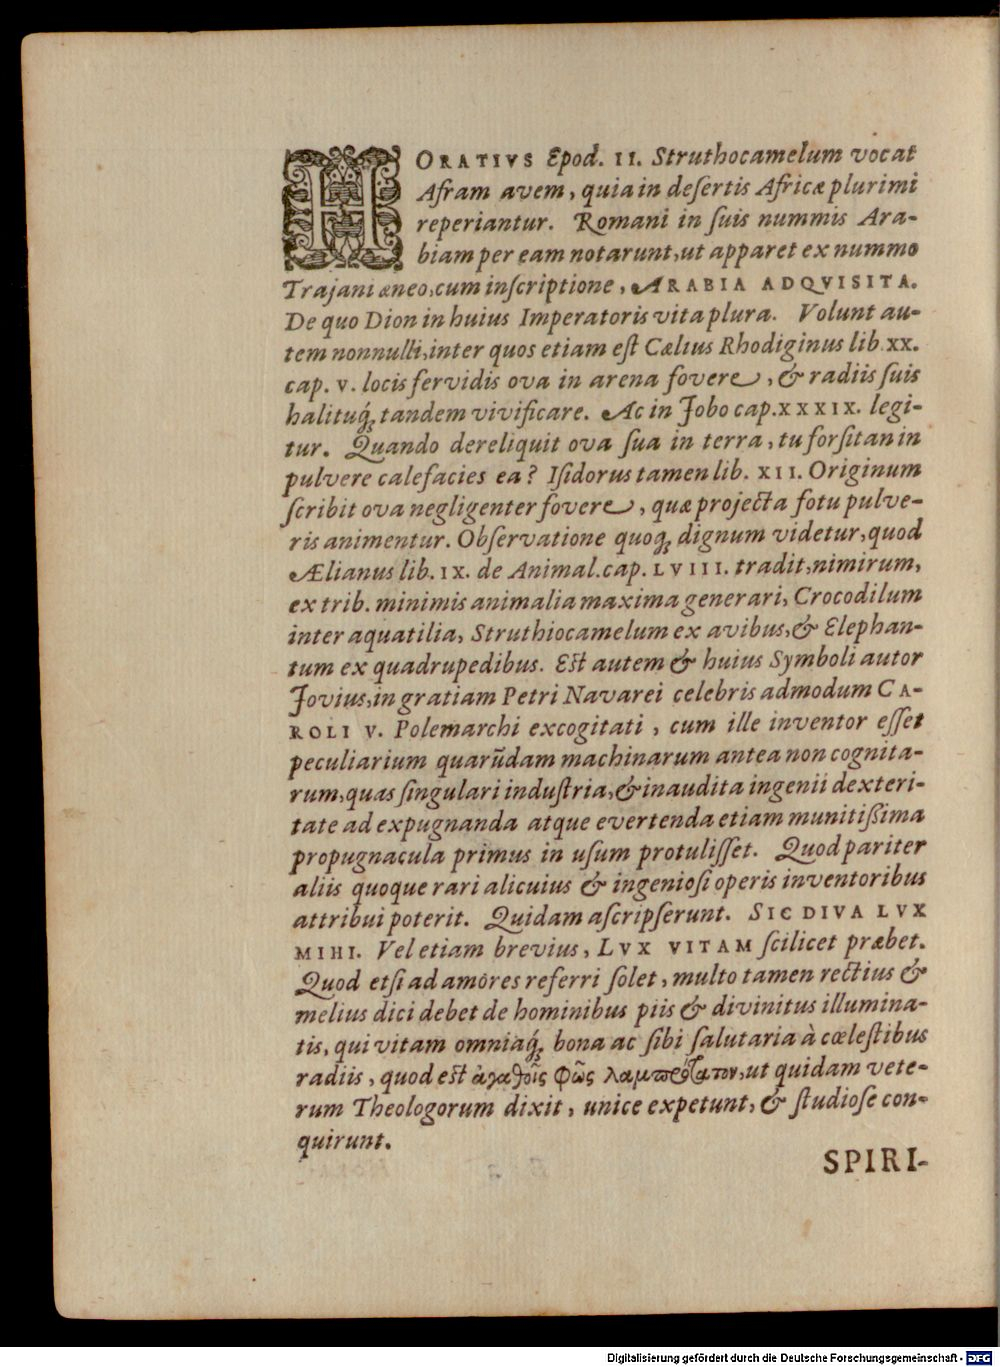 HORATIVS Epod. II. Struthocamelum vocat
Afram avem, quia in desertis Africæ plurimi
reperiantur. Romani in suis nummis Ara-
biam per eam notarunt, ut apparet ex nummo
Trajani æneo, cum inscriptione, ARABIA ADQVISITA.
De quo Dion in huius Imperatoris vita plura. Volunt au-
tem nonnulli, inter quos etiam est Cælius Rhodiginus lib. XX.
cap. V. locis fervidis ova in arena fovere, & radiis suis
halituq́; tandem vivificare. Ac in Jobo cap. XXXIX. legi-
tur. Quando dereliquit ova sua in terra, tu forsitan in
pulvere calefacies ea? Isidorus tamen lib. XII. Originum
scribit ova negligenter fovere, quæ projecta fotu pulve-
ris animentur. Observatione quoq; dignum videtur, quod
Ælianus lib. IX. de Animal. cap. LVIII. tradit, nimirum,
ex trib. minimis animalia maxima generari, Crocodilum
inter aquatilia, Struthiocamelum ex avibus, & Elephan-
tum ex quadrupedibus. Est autem & huius Symboli autor
Jovius, in gratiam Petri Navarei celebris admodum CA-
ROLI V. Polemarchi excogitati, cum ille inventor esset
peculiarium quarūdam machinarum antea non cognita-
rum, quas singulari industria, & inaudita ingenii dexteri-
tate ad expugnanda atque evertenda etiam munitißima
propugnacula primus in usum protulisset. Quod pariter
aliis quoque rari alicuius & ingeniosi operis inventoribus
attribui poterit. Quidam ascripserunt. SIC DIVA LVX
MIHI. Vel etiam brevius, LVX VITAM scilicet præbet.
Quod etsi ad amores referri solet, multo tamen rectius &
melius dici debet de hominibus piis & divinitus illumina-
tis, qui vitam omniaq́; bona ac sibi salutaria à cœlestibus
radiis, quod est ἀγαθοῖς φῶς λαμπρότατον, ut quidam vete-
rum Theologorum dixit, unice expetunt, & studiose con-
quirunt.
SPIRI-
Digitalisierung gefördert durch die Deutsche Forschungsgemeinschaft - DFG